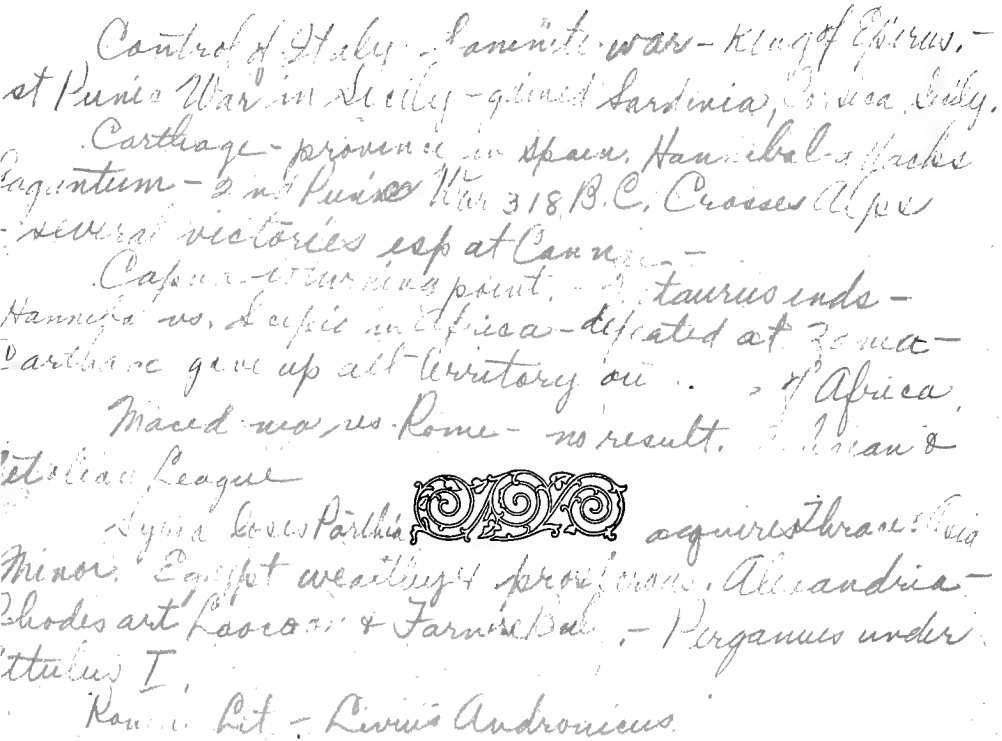 Control of Italy - Saminite war - King of Epirus. -
st Punic War in Sicily - gained Sardinia, Corsica, Sicily.
Carthage - province in Spain. Hannibal attacks
Saguntum - 2nd Punic War 318 B.C. Crosses Alps
- several victories esp at Cann
Capua turning point. - taurus ends -
Hanniba vs. Scipio in Africa - defeated at Zama -
Carthage give up all territory out of Africa.
Maced nia vs. Rome - no result. &
etolian League
Syria loses Parthia acquires Thrace & Asia
Minor. Egypt wealthy & prosperous. Alexandria -
Rhodes art Laocoon & Farnese Bul . - Pergamus under
ttulus I.
Roman Lit - Livius Andronicus